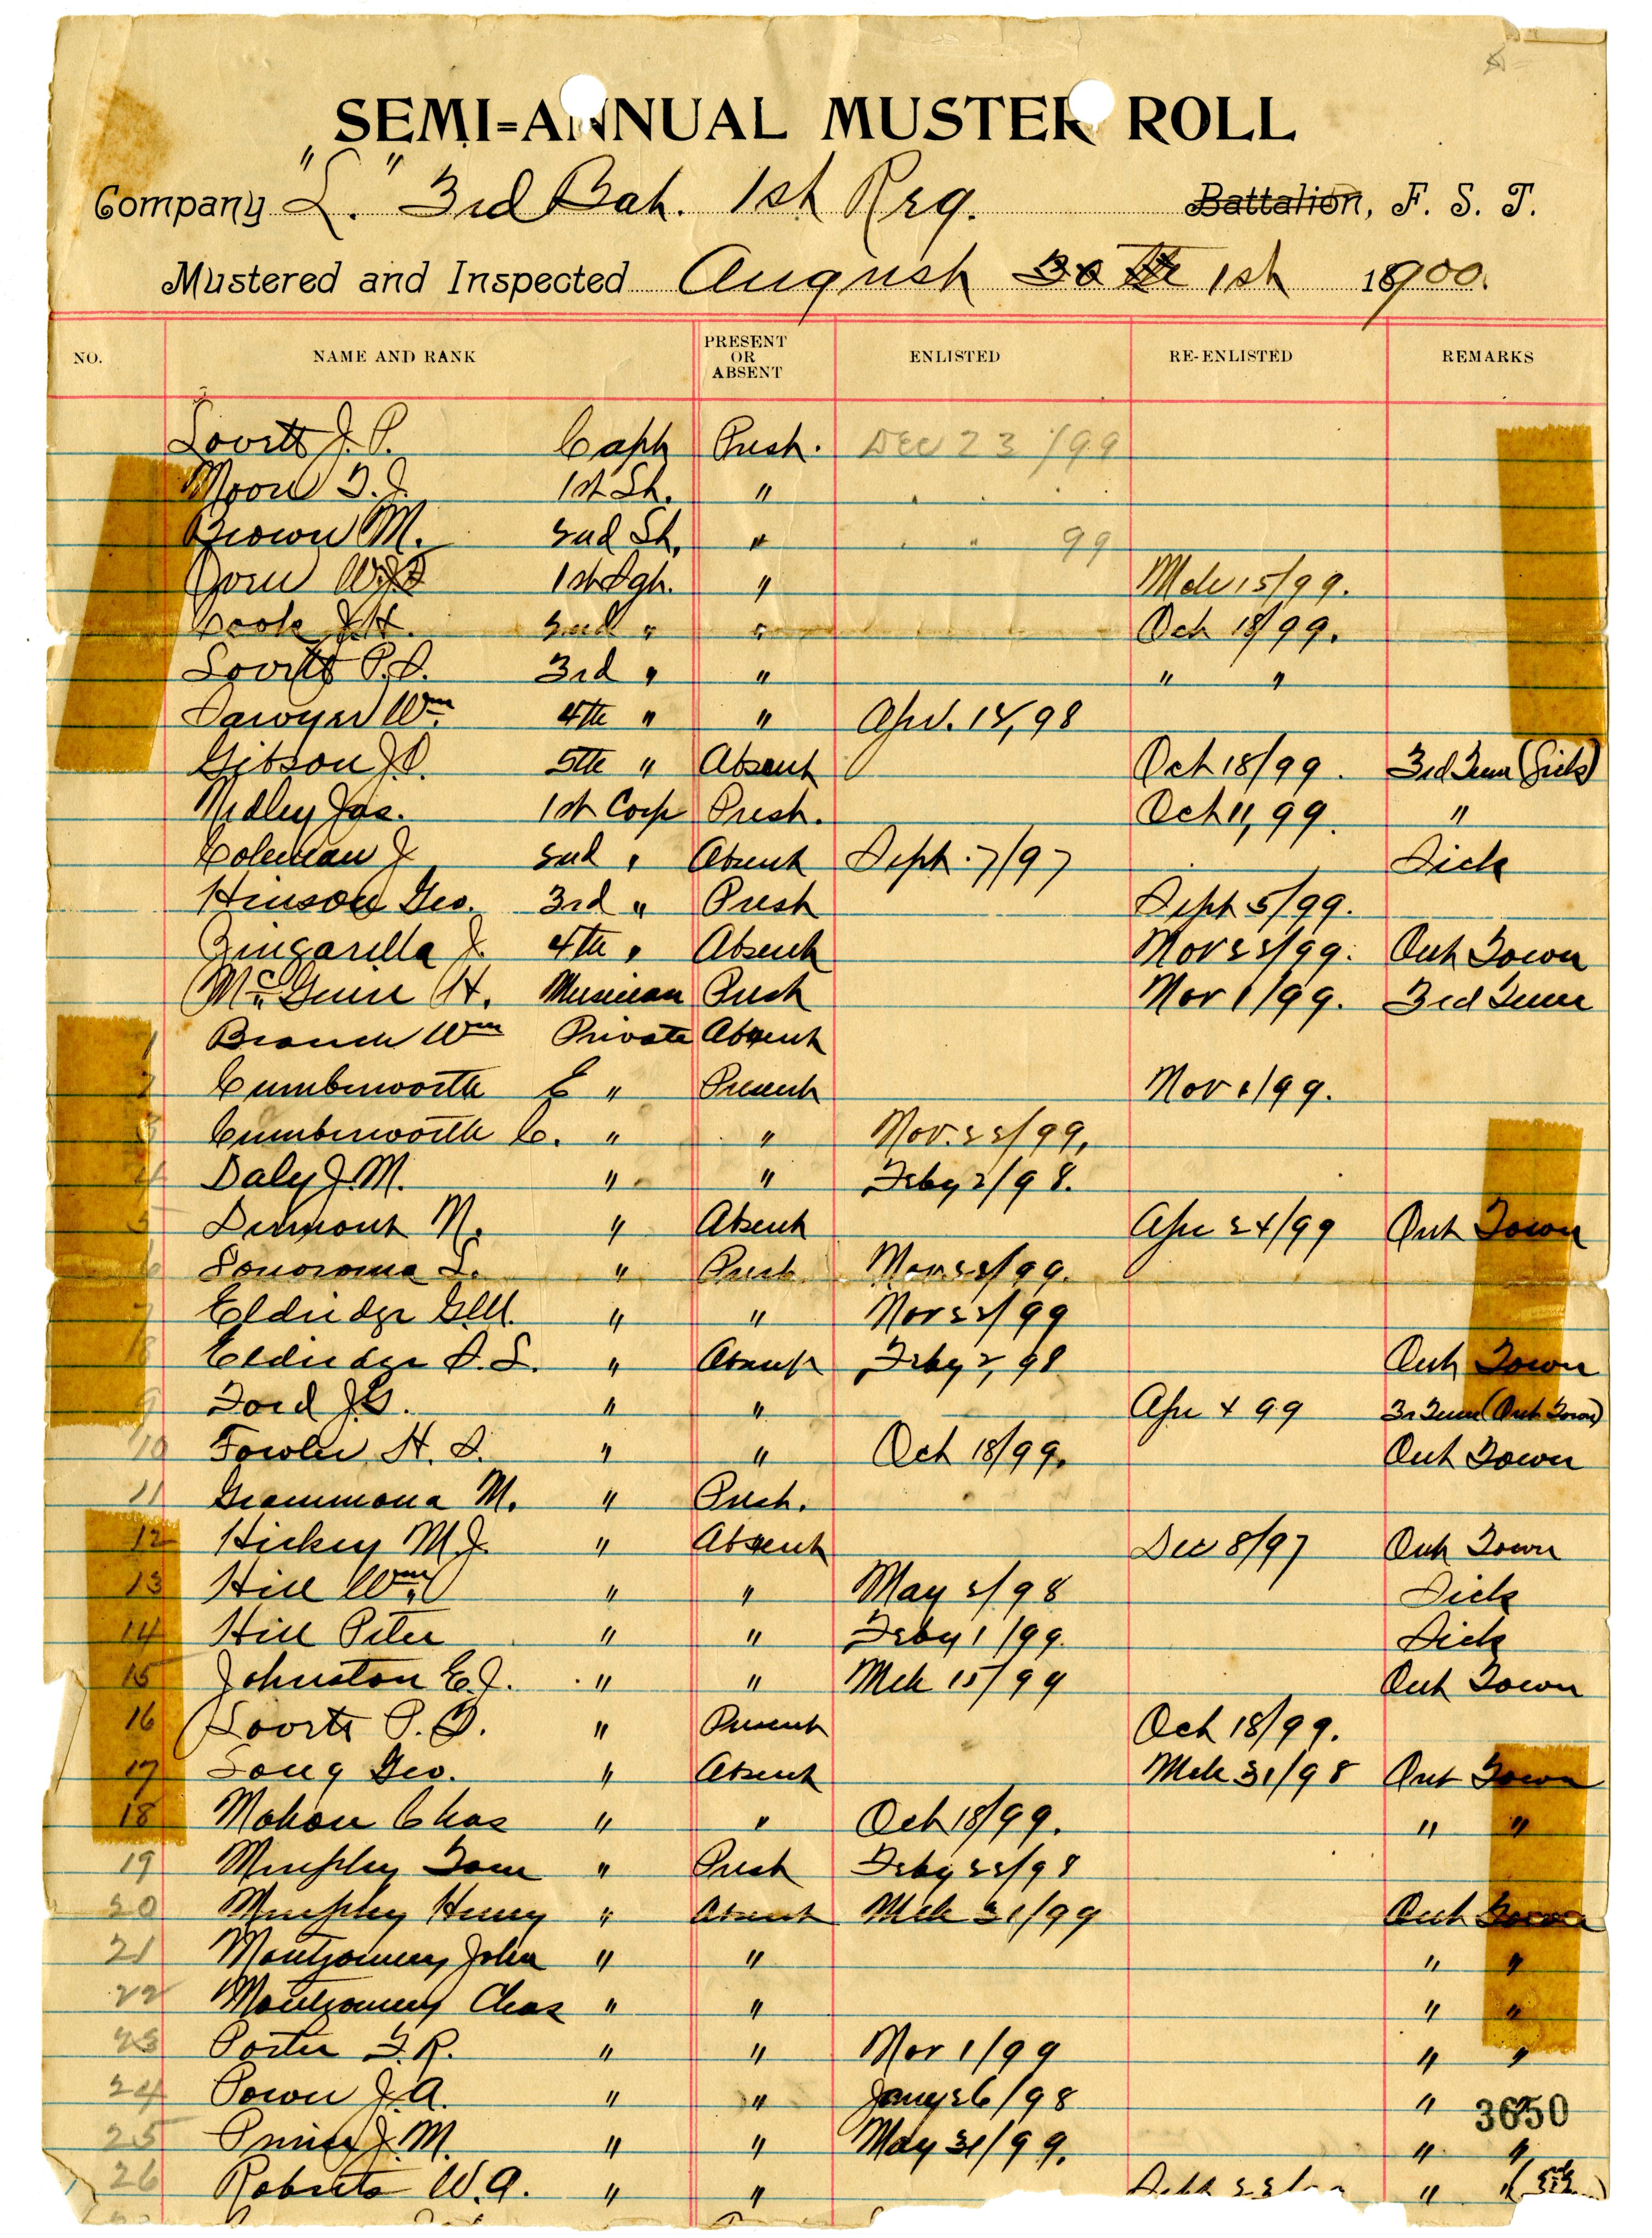 SEMI=ANNUAL MUSTER ROLL
Company "L." 3rd Bat. 1st Reg. Battalion, F. S. T.
Mustered and Inspected August 30th 1st 1900.
NO. NAME AND RANK PRESENT OR ABSENT ENLISTED RE-ENLISTED REMARKS
Lovett J. P. Capt Prest. DEC 23/99
Moore T. J. 1st Lt. "
Brown M. 2nd Lt. " " 99
W. 1st Sgt. " Mch 15/99.
Cook J. H. 2nd " " Oct 18/99.
Lovett P. 3rd " " " "
Sawyer Wm. 4th " " Apr. 14, 98
Gibson J. 5th " Absent Oct 18/99. 3rd Term (Sick)
Nedley Jas. 1st Corp Prest. Oct 11, 99. "
Coleman J 2nd " Absent Sept. 7/97 Sick
Hinson Geo. 3rd " Prest Sept 5/99.
Zingarella J. 4th " Absent Nov 22/99. Out Town
McGuire H. Musician Prest Nov 1/99. 3rd Term
1 Branch Wm Private Absent
2 Cumberworth E " Present Nov 1/99.
3 Cumberworth C. " " Nov. 22/99.
4 Daly J. M. " " Feby 2/98.
5 Dumont N. " Absent Apr 24/99 Out Town
6 L. " Prest Nov. 22/99.
7 Eldridge G. W. " " Nov 22/99
8 Eldridge S. L. " Absent Feby 2, 98 Out Town
9 Ford J. G. " " Apr 4 99 3r Term (Out Town)
10 Fowler H. S. " " Oct 18/99. Out Town
11 Grammona M. " Prest.
12 Hickey M. J. " Absent Dec 8/97 Out Town
13 Hill Wm " " May 2/98 Sick
14 Hill Peter " " Feby 1/99. Sick
15 Johnston E. J. " " Mch 15/99 Out Town
16 Lovett P. " Present Oct 18/99.
17 Long Geo. " Absent Mch 31/98 Out Town
18 Mahon Chas " " Oct 18/99. " "
19 Murphy Tom " Prest Feby 22/98
20 Murphy Henry " Absent Mch 31/99 Out Town
21 Montgomery John " " " "
22 Montgomery Chas " " " "
23 Porter F. R. " " Nov 1/99 " "
24 Power J. A. " " Jany 26/98 " "
3650
25 J. M. " " May 31/99. " "
26 Roberts W. A. " " Sept 22 " "